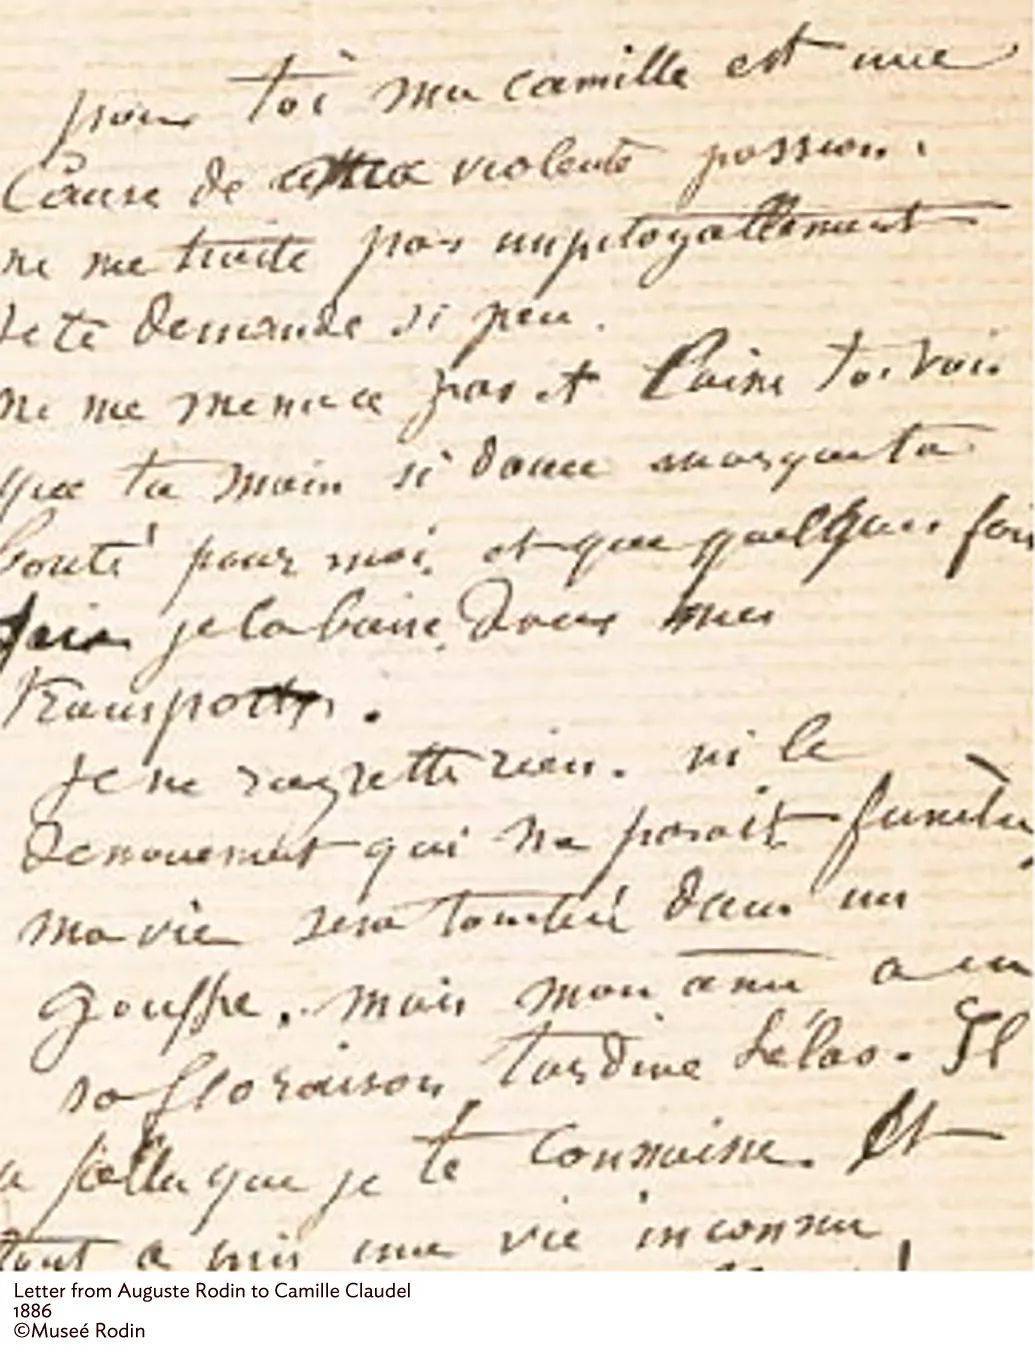 pour toi ma camille est une
Cause de violente passion.
ne me traite pas impitoyablement
Je te demande si peu.
ne me menace pas et laisse toi voir
que ta main si douce marque ta
bonté pour moi. et que quelques fois
je la baise dans mes
transports.
Je ne regrette rien. ni le
denouement qui me parait funèbre
ma vie sera tombée dans un
gouffre. mais mon ame a eu
sa floraison, tardive hélas. Il
a fallu que je te connaisse. Et
tout a pris une vie inconnue
Letter from Auguste Rodin to Camille Claudel
1886
©Museé Rodin